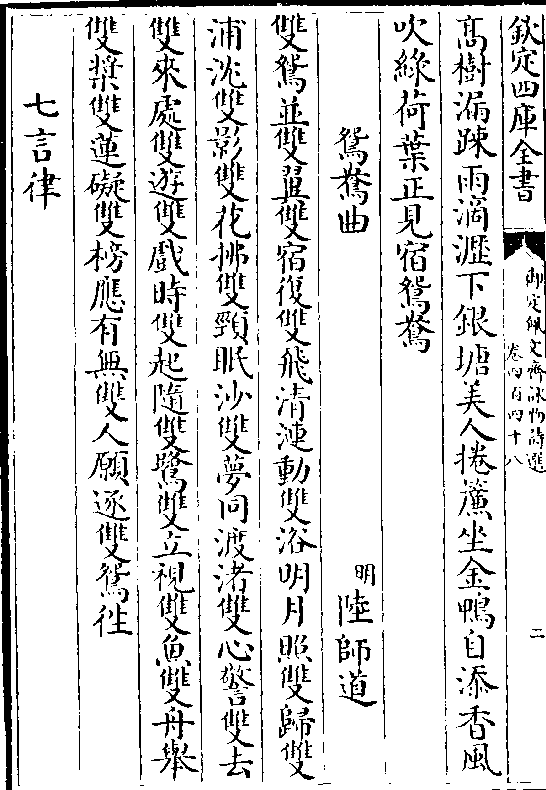 欽定四庫全書
御定佩文齋詠物詩選
卷四百四十八
二
髙樹漏疎雨滴瀝下銀塘美人捲簾坐金鴨自添香風
吹綠荷葉正見宿鴛鴦
鴛鴦曲
明陸師道
雙鴛並雙翼雙宿復雙飛清漣動雙浴明月照雙歸雙
浦沈雙影雙花拂雙頸眠沙雙夢同渡渚雙心警雙去
雙來處雙遊雙戲時雙起隨雙鷺雙立視雙魚雙舟舉
雙槳雙蓮礙雙榜應有無雙人願逐雙鴛往
七言律